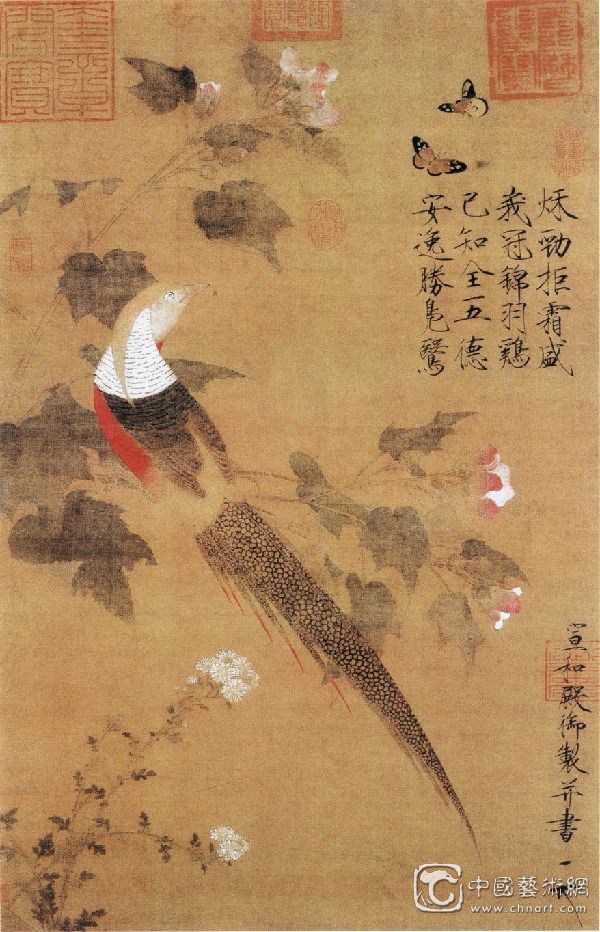 秋勁拒霜盛
峩冠錦羽鷄
已知全五德
安逸勝鳧鷖
宣和殿御製并書
中國藝術網
www.chnart.com